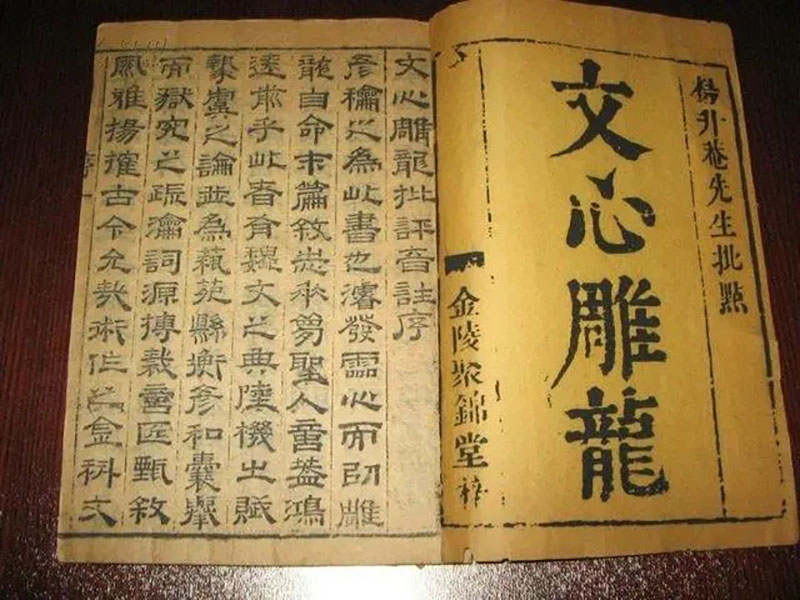 楊升菴先生批點
文心雕龍
金陵聚錦堂梓
文心雕龍批評音註序
彥龢之為此書也濬發靈心而以雕
龍自命末篇敘志夢聖人意蓋鴻
遠前乎此者有魏文之典陸機之賦
摯虞之論並為藝苑縣衡彥和囊舉
而獄究之疏瀹詞源摶裁意匠甄敘
風雅揚搉古今允哉術作之金科文
序一